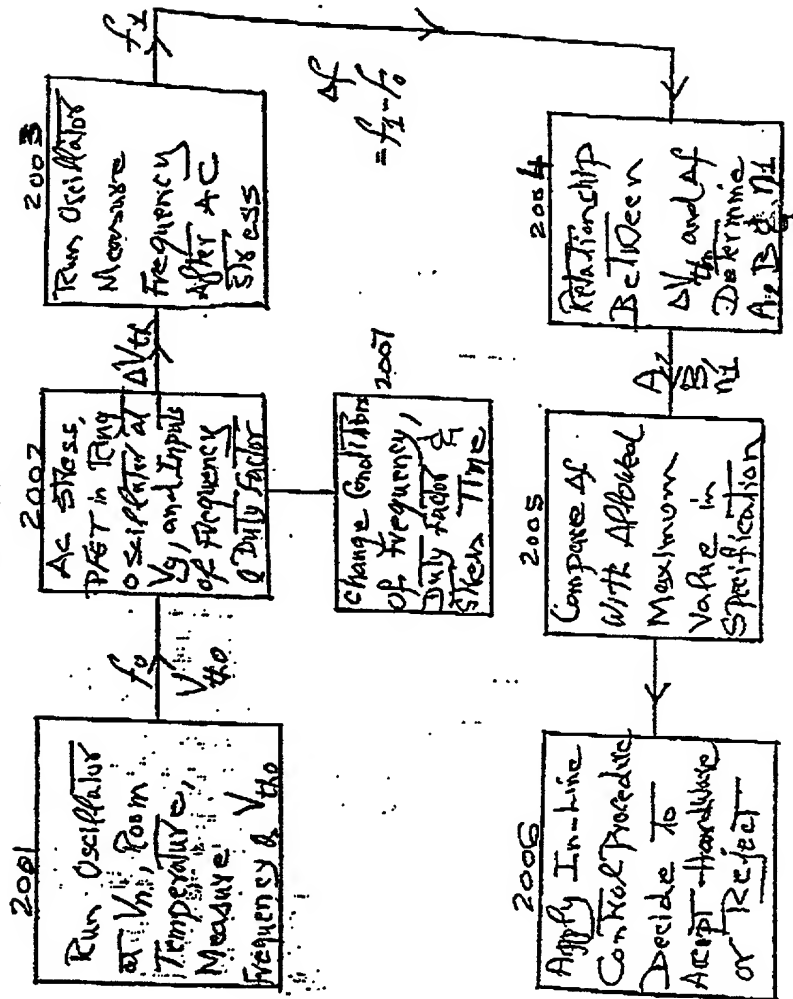 2001
Run Oscillator
at Vn, Room
Temperature,
Measure
Frequency & Vtho
f0
Vtho
2002
AC Stress,
PFET in Ring
Oscillator at
Vg, and Inputs
of Frequency
& Duty Factor
ΔVth
2007
Change Condition
of Frequency,
Duty Factor &
Stress Time
2003
Run Oscillator
Measure
Frequency
After AC
Stress
f1
Δf
=f1-f0
2004
Relationship
Between
ΔVth and Δf
Determine
A2, B & n1
A2
B
n1
2005
Compare Δf
With Allowed
Maximum
Value in
Specification
2006
Apply In-Line
Control Procedure
Decide To
Accept Hardware
or Reject